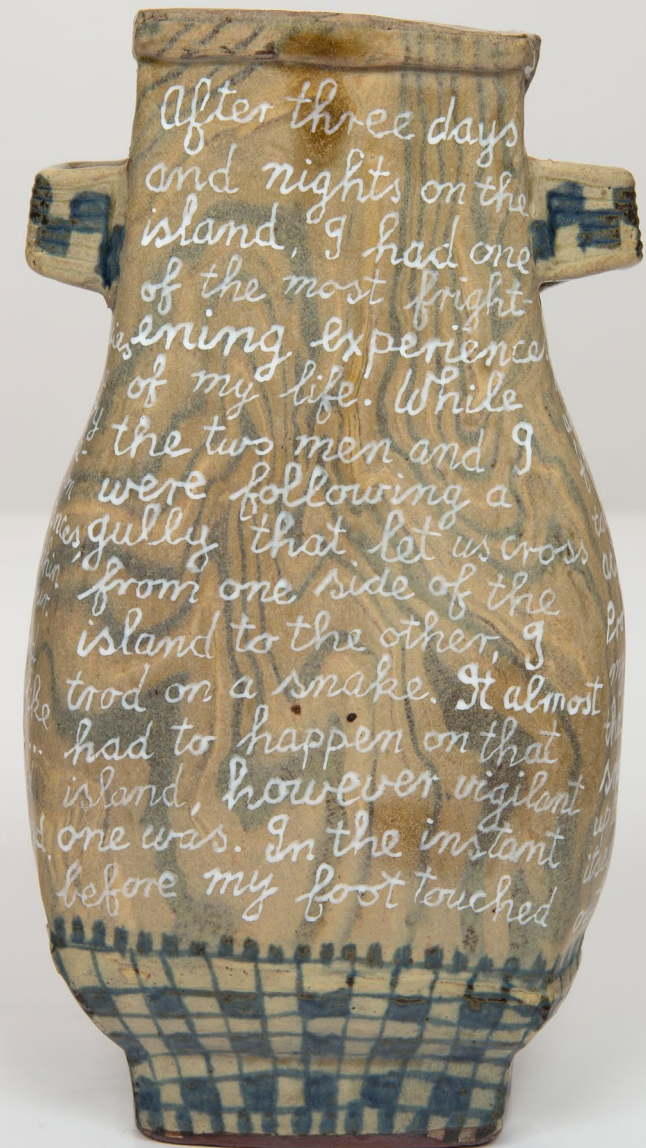 After three days
and nights on the
island, I had one
of the most fright-
ening experience
of my life. While
the two men and I
were following a
gully that let us cross
from one side of the
island to the other, I
trod on a snake. It almost
had to happen on that
island, however vigilant
one was. In the instant
before my foot touched